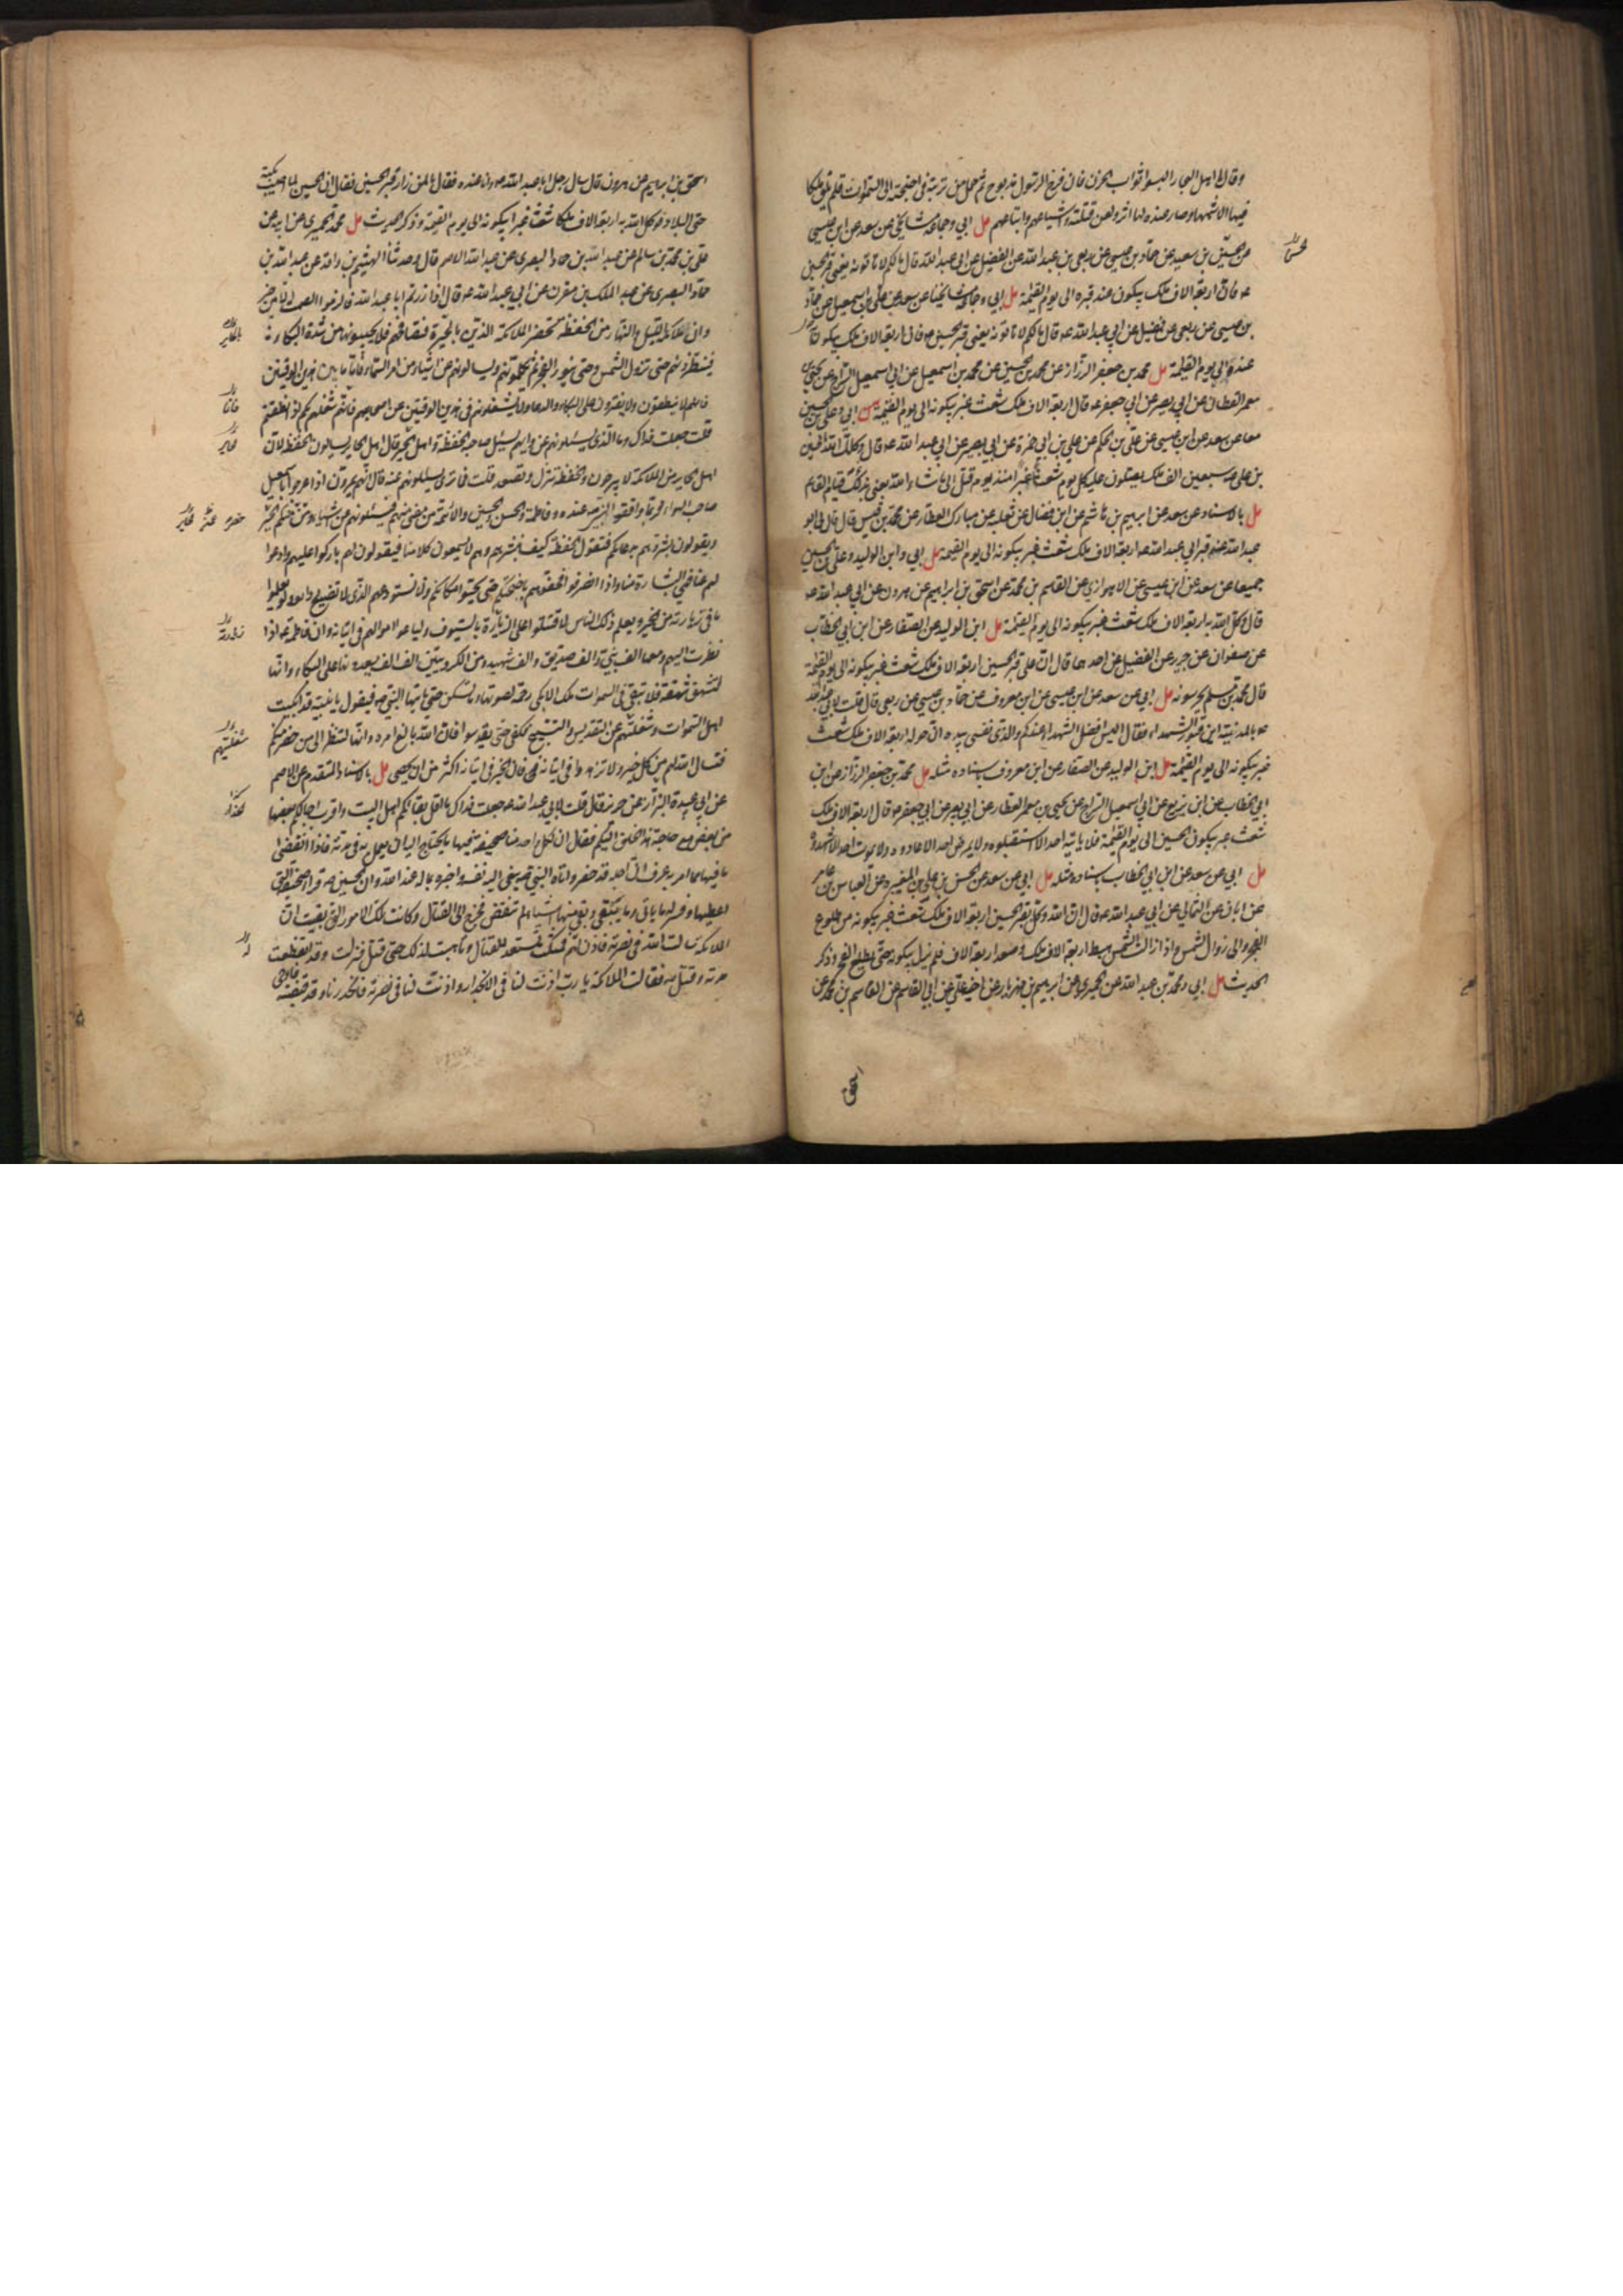 وقال يا اهل البحار البسوا اثواب الحزن فان فرخ الرسول مذبوح ثم حمل من تربته في اجنحته الى السموات فلم يلق ملكا
فيها الا شمها وصار عنده لها اثر ولعن قتلته واشياعهم واتباعهم مل ابي وجماعة مشايخي عن سعد عن ابن عيسى
عن الحسين بن سعيد عن حماد بن عيسى عن ربعي بن عبد الله عن الفضيل عن ابي عبد الله قال مالكم لا تاتونه يعني قبر الحسين
عه فان اربعة الاف ملك يبكون عند قبره الى يوم القيمة مل ابي وجماعة مشايخنا عن سعد عن علي بن اسمعيل عن حماد
بن عيسى عن ربعي عن فضيل عن ابي عبد الله عه قال مالكم لا تاتونه يعني قبر الحسين عه فان اربعة الاف ملك يبكون
عنده الى يوم القيمة مل محمد بن جعفر الرزاز عن محمد بن الحسين عن محمد بن اسمعيل عن ابي اسمعيل السراج عن يحيى بن
معمر القطان عن ابي بصير عن ابي جعفر عه قال اربعة الاف ملك شعث غبر يبكونه الى يوم القيمة مل ابي وعلي بن الحسين
معا عن سعد عن ابن عيسى عن علي بن الحكم عن علي بن ابي حمزة عن ابي بصير عن ابي عبد الله عه قال وكل الله بالحسين
بن علي عه سبعين الف ملك يصلون عليه كل يوم شعثا غبرا منذ يوم قتل الى ما شاء الله يعني بذلك قيام القايم
مل بالاسناد عن سعد عن ابرهيم بن هاشم عن ابن فضال عن ثعلبه عن مبارك العطار عن محمد بن قيس قال قال لي ابو
عبد الله عند قبر ابي عبد الله عه اربعة الاف ملك شعث غبر يبكونه الى يوم القيمة مل ابي وابن الوليد وعلي بن الحسين
جميعا عن سعد عن ابن عيسى عن الاهوازي عن القاسم بن محمد عن اسحق بن ابراهيم عن هرون عن ابي عبد الله عه
قال وكل الله به اربعة الاف ملك شعث غبر يبكونه الى يوم القيمة مل ابن الوليد عن الصفار عن ابن ابي الخطاب
عن صفوان عن حريز عن الفضيل عن احدهما قال ان على قبر الحسين اربعة الاف ملك شعث غبر يبكونه الى يوم القيمة
قال محمد بن مسلم يحرسونه مل ابي عن سعد عن ابن عيسى عن ابن معروف عن حماد بن عيسى عن ربعي قال قلت لابي عبد الله
عه بالمدينة اين قبور الشهداء فقال اليس افضل الشهداء عندكم والذي نفسي بيده ان حوله اربعة الاف ملك شعث
غبر يبكونه الى يوم القيمة مل ابن الوليد عن الصفار عن ابن معروف باسناده مثله مل محمد بن جعفر الرزاز عن ابن
ابي الخطاب عن ابن بزيع عن ابي اسمعيل السراج عن يحيى بن معمر العطار عن ابي بصير عن ابي جعفر عه قال اربعة الاف ملك
شعث غبر يبكون الحسين الى يوم القيمة فلا ياتيه احد الا استقبلوه ولا يمرض احد الا عادوه ولا يموت احد الا شهدوه
مل ابي عن سعد عن ابن ابي الخطاب باسناده مثله مل ابي عن سعد عن الحسن بن علي بن المغيرة عن العباس بن عامر
عن ابان عن الثمالي عن ابي عبد الله عه قال ان الله وكل بقبر الحسين اربعة الاف ملك شعث غبر يبكونه من طلوع
الفجر الى زوال الشمس واذا زالت الشمس هبط اربعة الاف ملك وصعد اربعة الاف فلم يزل يبكونه حتى يطلع الفجر وذكر
الحديث مل ابي ومحمد بن عبد الله عن الحميري عن ابرهيم بن مهزيار عن اخيه علي عن ابي القاسم عن القاسم بن محمد عن
اسحق
اسحق بن ابراهيم عن هرون قال سال رجل ابا عبد الله عه وانا عنده فقال ما لمن زار قبر الحسين فقال ان الحسين لما اصيب بكته
حتى البلاد فوكل الله به اربعة الاف ملكا شعثا غبرا يبكونه الى يوم القيمة وذكر الحديث مل محمد الحميري عن ابيه عن
علي بن محمد بن سالم عن عبد الله بن حماد البصري عن عبد الله الاصم قال وحدثنا الهيثم بن واقد عن عبد الله بن
حماد البصري عن عبد الملك بن مقرن عن ابي عبد الله عه قال اذا زرتم ابا عبد الله فالزموا الصمت الا من خير
وان ملائكة الليل والنهار من الحفظة تحضر الملائكة الذين بالحيرة فتصافحهم فلا يجيبونها من شدة البكاء
فينتظرونهم حتى تزول الشمس وحتى ينور الفجر ثم يكلمونهم ويسالونهم عن اشياء من امر السماء فاما ما بين هذين الوقتين
فانهم لا ينطقون ولا يفترون على البكاء والدعاء ولا يشغلونهم في هذين الوقتين عن اصحابهم فانهم شغلهم بكم اذا نطقتم
قلت جعلت فداك وما الذي يسئلونهم عنه وايهم يسئل صاحبه الحفظة او اهل الحير قال اهل الحاير يسالون الحفظة لان
اهل الحاير من الملائكة لا يبرحون والحفظة تنزل وتصعد قلت فما ترى يسئلونهم عنه قال انهم يمرون اذا عرجوا باسمعيل
صاحب الهواء فربما وافقوا النبي صه عنده وفاطمة والحسن والحسين والائمة من مضى منهم فيسئلونهم عن اشياء ومن حضر منكم الحير
ويقولون بشروهم بدعائكم فتقول الحفظة كيف نبشرهم وهم لا يسمعون كلامنا فيقولون لهم باركوا عليهم وادعوا
لهم عنا فهي البشارة منا واذا انصرفوا فحفوهم باجنحتكم حتى يحسوا مكانكم وانا نستودعهم الذي لا تضيع ودايعه ولو يعلموا
ما في زيارته من الخير ويعلم ذلك الناس لاقتتلوا على الزيارة بالسيوف ولباعوا اموالهم في اتيانه وان فاطمة عه اذا
نظرت اليهم ومعها الف نبي والف صديق والف شهيد ومن الكروبيين الف الف يسعدونها على البكاء وانها
لتشهق شهقة فلا تبقى في السموات ملك الا بكى رحمة لصوتها وما تسكن حتى ياتيها النبي صه فيقول يا بنية قد ابكيت
اهل السموات وشغلتهم عن التقديس والتسبيح فكفي حتى يقدسوا فان الله بالغ امره وانها لتنظر الى من حضر منكم
فتسال الله لهم من كل خير ولا تزهدوا في اتيانه فان الخير في اتيانه اكثر من ان يحصى مل بالاسناد المتقدم عن الاصم
عن ابي عبيدة البزاز عن حريز قال قلت لابي عبد الله عه جعلت فداك ما اقل بقائكم اهل البيت واقرب اجالكم بعضها
من بعض مع حاجة هذا الخلق اليكم فقال ان لكل واحد منا صحيفة فيها ما يحتاج اليه ان يعمل به في مدته فاذا انقضى
ما فيها مما امر به عرف ان اجله قد حضر واتاه النبي صه ينعى اليه نفسه واخبره بما له عند الله وان الحسين صه قرا صحيفته التي
اعطيها وفسر له ما ياتي وما يبقى وبقي منها اشياء لم تنقض فخرج الى القتال وكانت تلك الامور التي بقيت ان
الملائكة سالت الله في نصرته فاذن لهم فمكثت تستعد للقتال وتاهبت لذلك حتى قتل فنزلت وقد انقطعت
مدته وقتل صه فقالت الملائكة يا رب اذنت لنا في الانحدار واذنت لنا في نصرته فانحدرنا وقد قبضته